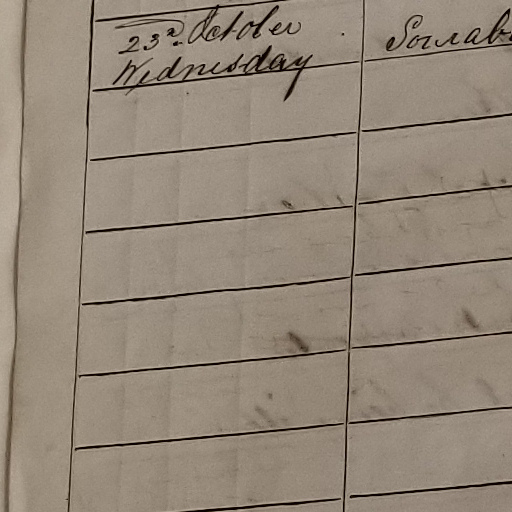 23d. October
Wednesday
Sorrab